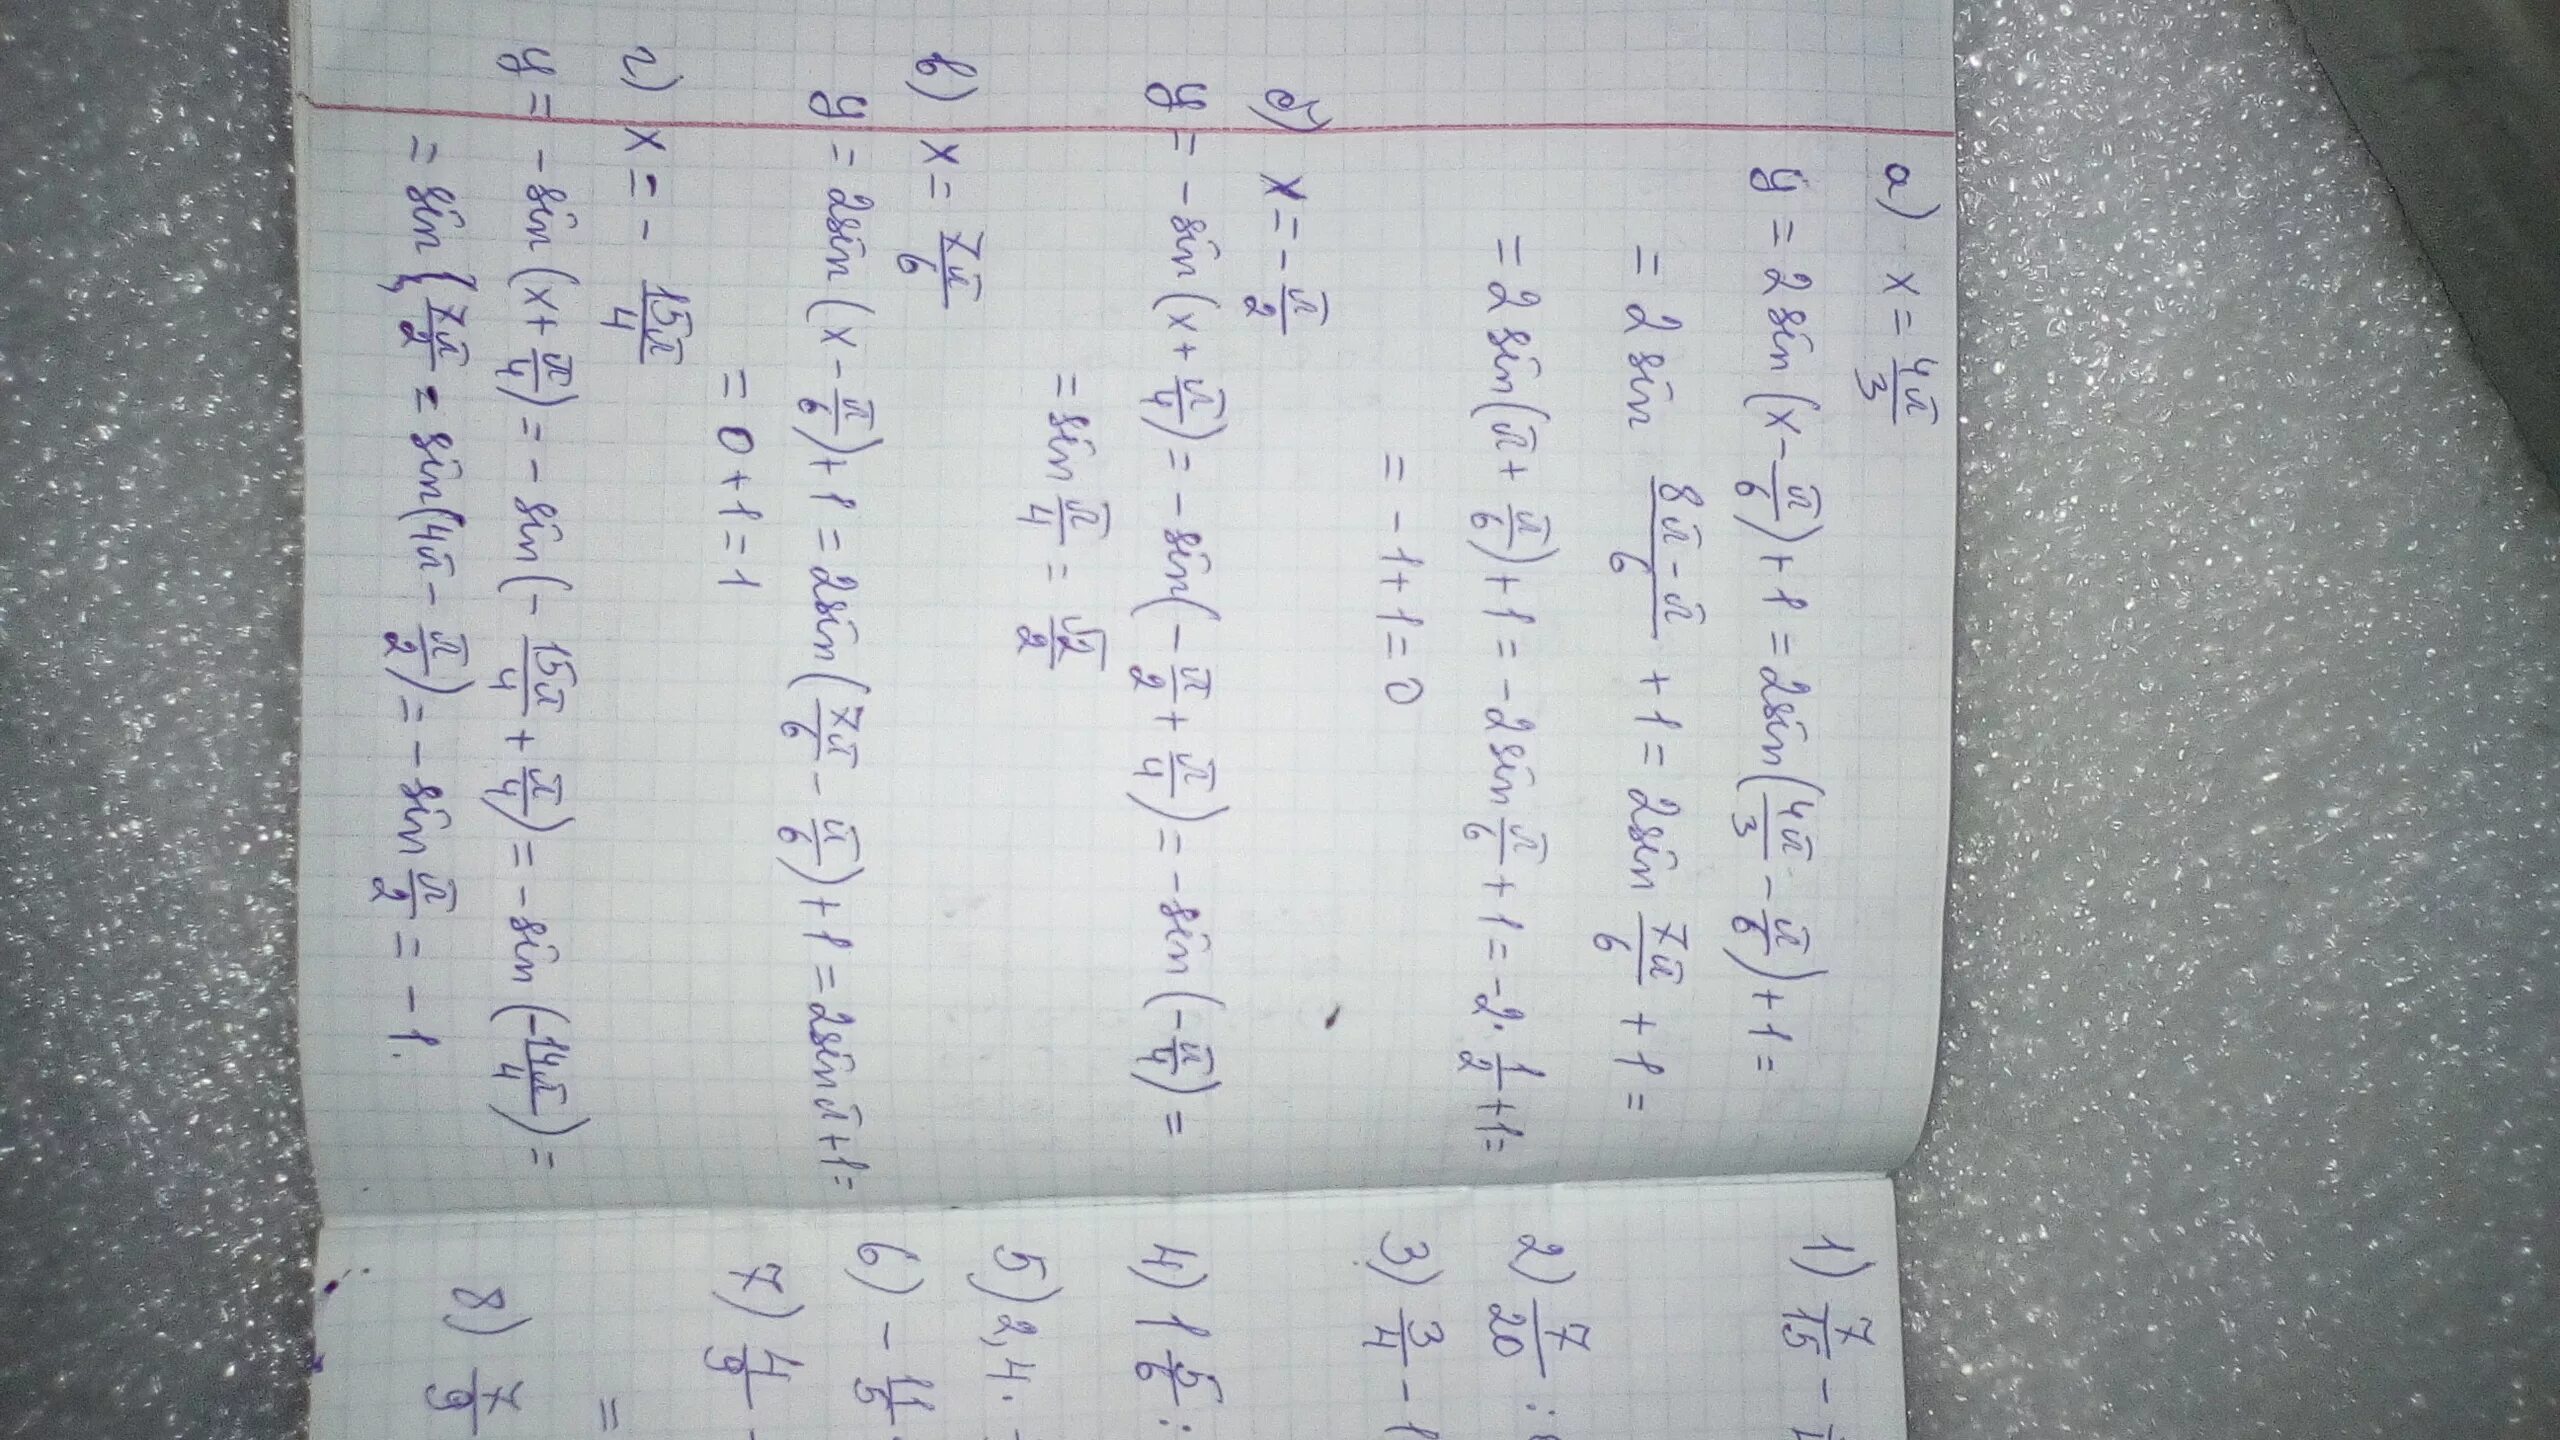 а) x = 4π/3
y = 2 sin (x - π/6) + 1 = 2 sin (4π/3 - π/6) + 1 =
= 2 sin (8π - π)/6 + 1 = 2 sin 7π/6 + 1 =
= 2 sin (π + π/6) + 1 = -2 sin π/6 + 1 = -2 · 1/2 + 1 =
= -1 + 1 = 0
б) x = - π/2
y = - sin (x + π/4) = - sin (- π/2 + π/4) = - sin (- π/4) =
= sin π/4 = √2/2
в) x = 7π/6
y = 2 sin (x - π/6) + 1 = 2 sin (7π/6 - π/6) + 1 = 2 sin π + 1 =
= 0 + 1 = 1
г) x = - 15π/4
y = - sin (x + π/4) = - sin (- 15π/4 + π/4) = - sin (-14π/4) =
= sin 7π/2 = sin (4π - π/2) = - sin π/2 = - 1.
1) 7/15 -
2) 7/20 :
3) 3/4 - 1
4) 1 5/6 :
5) 2,4 ·
6) - 11/5
7) 4/9 -
=
8) 7/9